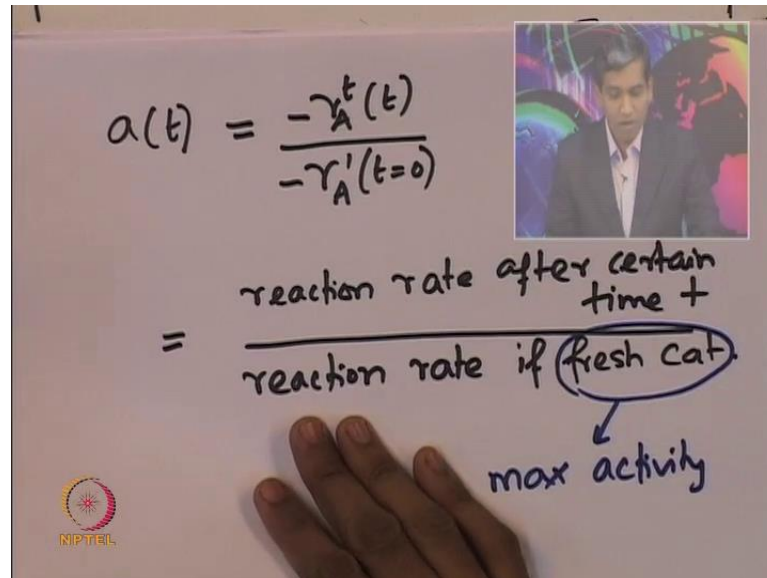 a(t) = -r_A^t(t)
-r_A'(t=0)
= reaction rate after certain
time t
reaction rate if fresh cat.
max activity
NPTEL